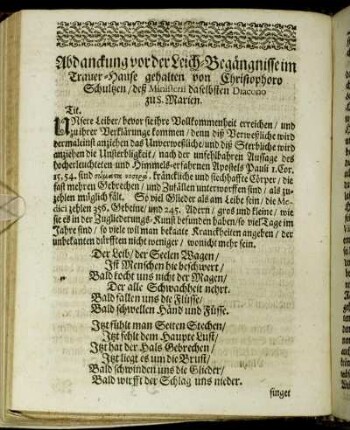 Abdanckung vor der Leich-Begängnisse im
Trauer-Hause gehalten von Christophoro
Schultzen / deß Ministerii daselbsten Diacono
zu S. Marien.
Tit.
UNsere Leiber / bevor sie ihre Vollkommenheit erreichen / und
zu ihrer Verklärunge kommen / denn diß Verweßliche wird
dermaleinst anziehen das Unverweßliche / und diß Sterbliche wird
anziehen die Unsterbligkeit / nach der unfehlbahren Aussage des
hocherleuchteten und Himmels-erfahrnen Apostels Pauli 1. Cor.
15. 54. sind σώματα νοσερὰ, kränckliche und siechhaffte Cörper / die
fast mehren Gebrechen / und Zufällen unterworffen sind / als zu-
zehlen möglich fält. So viel Glieder als am Leibe sein / die Me-
dici zehlen 356. Gebeine / und 245. Adern / gros und kleine / wie
sie es in der Zugliederungs-Kunst befunden haben / so viel Tage im
Jahre sind / so viele wil man bekante Kranckheiten angeben / der
unbekanten dürfften nicht weniger / wo nicht mehr sein.
Der Leib / der Seelen Wagen /
Ist Menschen hie beschwert /
Bald kocht uns nicht der Magen /
Der alle Schwachheit nehrt.
Bald fallen uns die Flüsse /
Bald schwellen Händ und Füsse.
Itzt fühlt man Seiten Stechen /
Itzt fehlt dem Haupte Lust /
Itzt hat der Hals Gebrechen /
Itzt liegt es um die Brust /
Bald schwinden uns die Glieder /
Bald wirfft der Schlag uns nieder.
singet